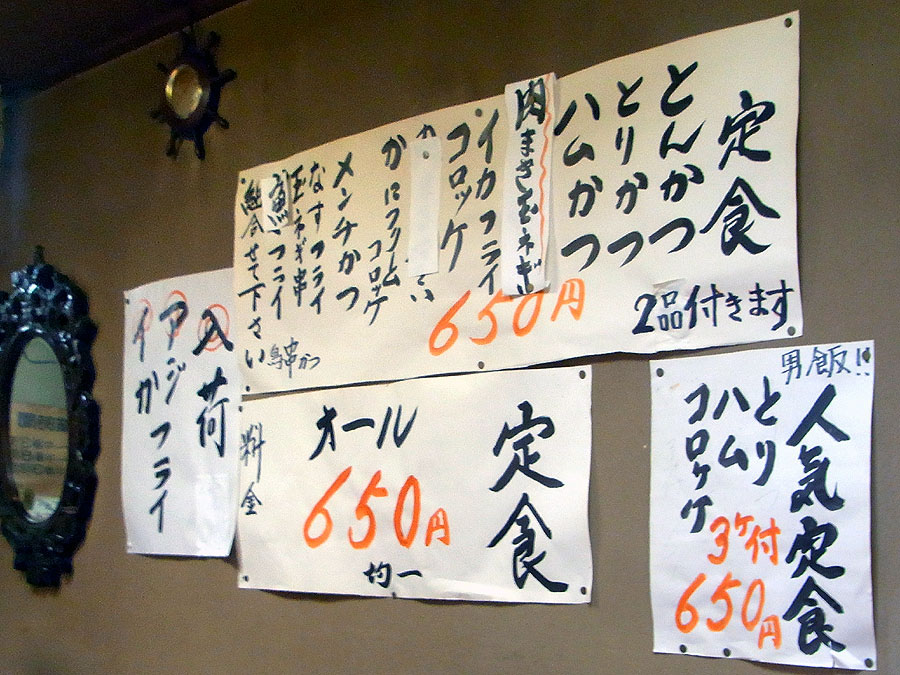 定食
とんかつ
とりかつ
ハムかつ
肉まき玉ネギ
イカフライ
コロッケ
かにクリーム
コロッケ
メンチかつ
なすフライ
玉ネギ串
魚フライ
組合せて下さい
鳥串かつ
650円
2品付きます
入荷
アジフライ
イか
定食
オール
650円
均一
料金
男飯!!
人気定食
とり
ハム
コロッケ
3ヶ付
650円